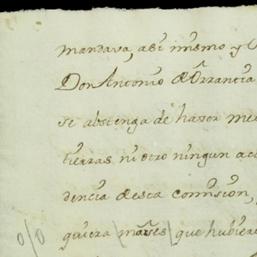 mandava, asi mismo y
Don Antonio de Urrancia
se abstenga de hazer me
tierras ni otro ningun ac
dencia desta comision,
quiera que hubiere